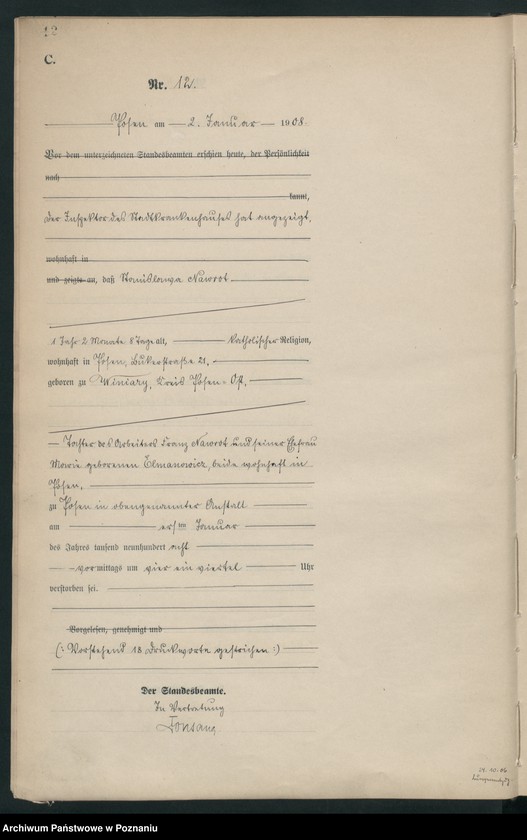 12
C.
Nr. 12.
Posen am 2. Januar 1908.
Vor dem unterzeichneten Standesbeamten erschien heute, der Persönlichkeit
nach
kannt,
der Inspektor des Stadtkrankenhauses hat angezeigt,
wohnhaft in
und zeigte an, daß Stanislawa Nawrot
1 Jahr 2 Monate 8 Tage alt, katholischer Religion,
wohnhaft in Posen, Bukerstraße 21,
geboren zu Winiary, Kreis Posen-Ost,
Tochter des Arbeiters Franz Nawrot und seiner Ehefrau
Marie geborenen Elmanowicz, beide wohnhaft in
Posen,
zu Posen in obengenannter Anstalt
am ersten Januar
des Jahres tausend neunhundert acht
vormittags um vier ein viertel Uhr
verstorben sei.
Vorgelesen, genehmigt und
(: Vorstehend 18 Druckworte gestrichen :)
Der Standesbeamte.
In Vertretung
Archiwum Państwowe w Poznaniu